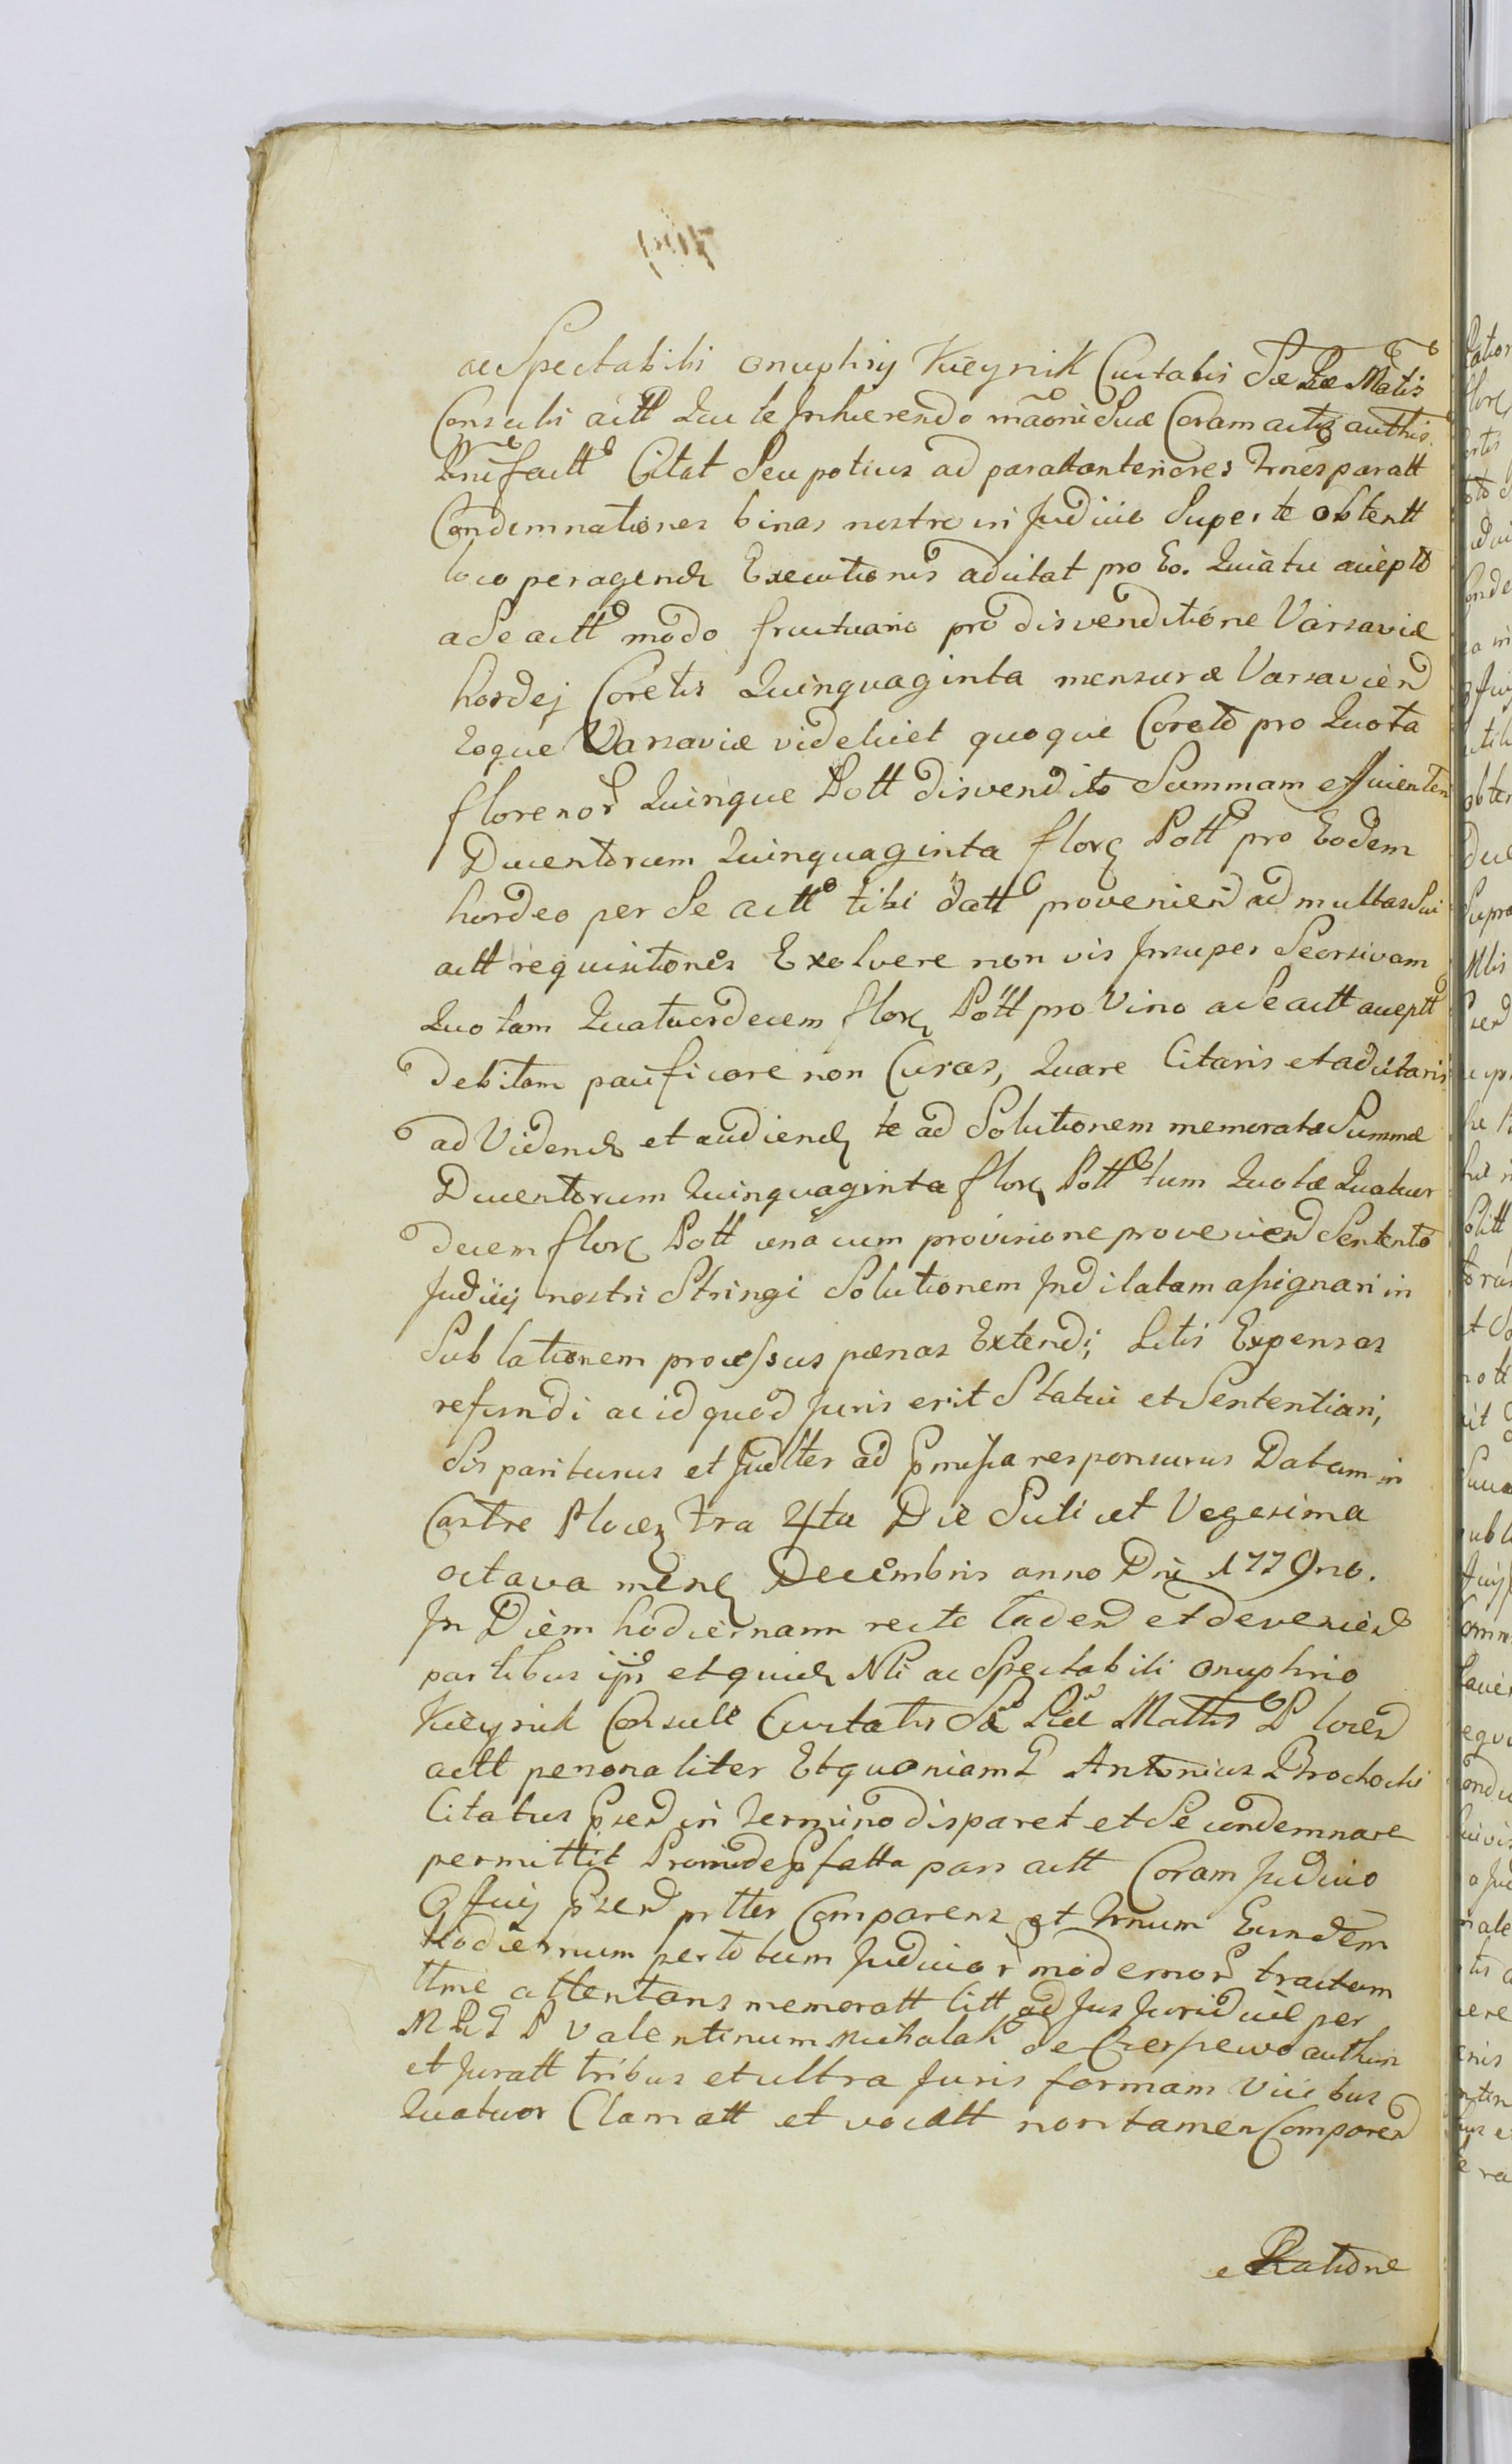 ac Spectabilis Onuphrij Kieynik Civitatis Sæ Ræ Mattis
Consulis actt Qui te Inhærendo mãoni Suæ Coram actis authis
Citat Seu potius ad paratt anteriores Trnes paratt
Condemnationes binas nostro in Judicio Super te obtentt
loco peragend Executionis adcitat pro Eo. Quia tu accepto
a Se actt modo fructuario pro disvenditione Varsaviæ
hordej Coretis Quinquaginta mensuræ Varsavien
eoque Varsaviæ videlicet quoque Coreto pro Quota
florenor Quinque Poll disvendito Summam efficientem
Ducentorum Quinquaginta flor Poll pro Eodem
hordeo per Se actt tibi datt provenien ad multas Sui
actt requisitiones Exolvere non vis Insuper Seorsivam
Quotam Quatuordecem flor Poll pro Vino a Se actt accept
debitam pacificare non Curas, Quare Citaris et adcitaris
ad Vidend et audiend te ad Solutionem memoratæ Summæ
Ducentorum Quinquaginta flor Poll tum Quotæ Quatuor
decem flor Poll una cum provisione provenien Sententõ
Judicij nostri Stringi Solutionem Indilatam assignari in
Sublationem processus pænas Extendi, Litis Expensas
refundi ac id quod Juris erit Statui et Sententiari,
Sis pariturus et Judlter ad pmissa responsurus Datum in
Castro Plocen Fra 4ta Die Scilicet Vegesima
octava mens Decembris anno Dni 1779no.
In Diem hodiernam recte Caden et devenien
partibus ijs et quid Nli ac Spectabili Onuphrio
Kieynik Consule Civitatis Sæ Ræ Mattis Plocen
actt personaliter Et quoniam G Antonius Brochocki
Citatus psen in Termino disparet et Se condemnare
permittit Proinde pfatta pars actt Coram Judicio
Offij psen prtter Comparens et Trnum Eundem
Hodiernum per totum Judicior modernor tractum
ttme attentans memoratt Citt ad Jus Juridice per
M R G P Valentinum Michalak de Cierpewo authen
et Juratt tribus et ultra Juris formam Vicibus
Quatuor Clamatt et vocatt non tamen Comparen
Ratione